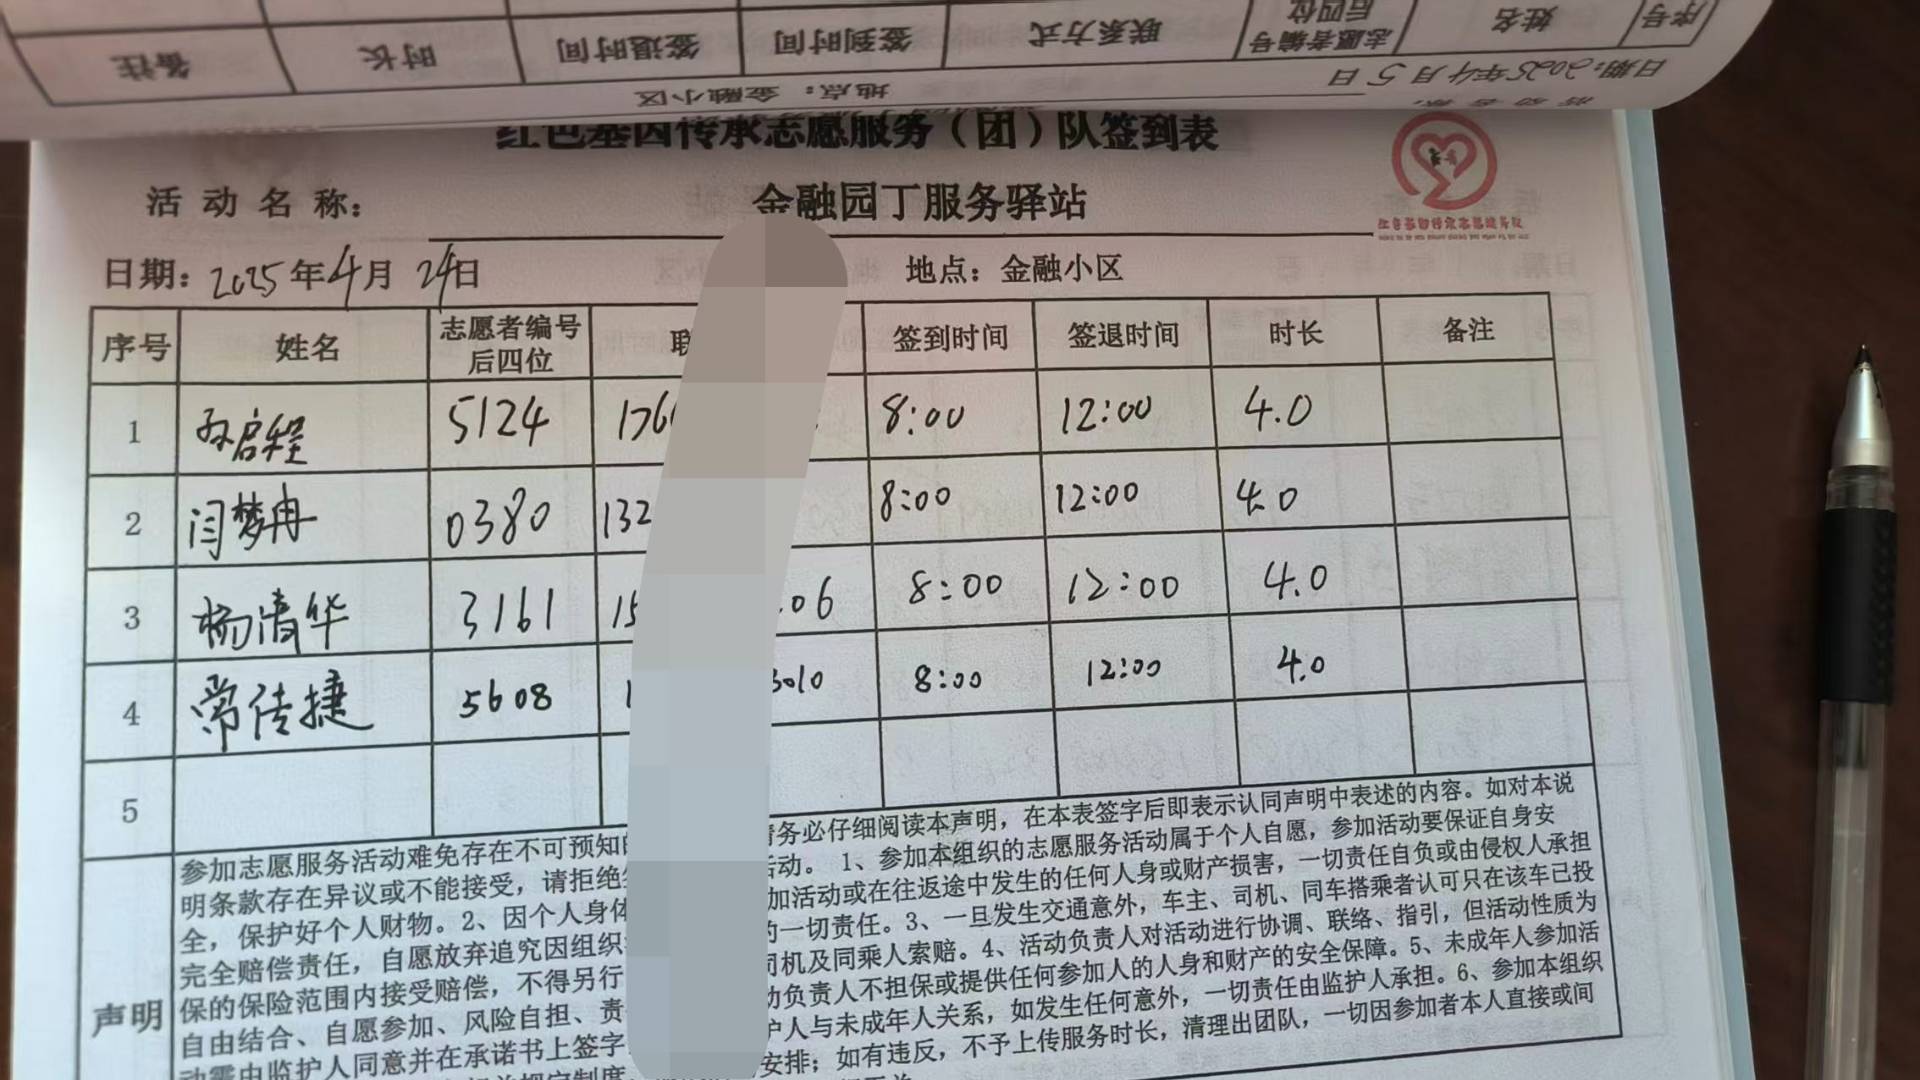 序号 姓名 志愿者编号后四位 联系方式 签到时间 签退时间 时长 备注
日期：2025年4月5日 地点：金融小区
红色基因传承志愿服务（团）队签到表
活动名称： 金融园丁服务驿站
日期：2025年4月24日 地点：金融小区
序号 姓名 志愿者编号后四位 联 签到时间 签退时间 时长 备注
1 孙启程 5124 176 8:00 12:00 4.0
2 闫梦冉 0380 132 8:00 12:00 4.0
3 杨清华 3161 15 06 8:00 12:00 4.0
4 常传捷 5608 1 3010 8:00 12:00 4.0
5
声明
参加志愿服务活动难免存在不可预知的 请务必仔细阅读本声明，在本表签字后即表示认同声明中表述的内容。如对本说
明条款存在异议或不能接受，请拒绝 活动。 1、参加本组织的志愿服务活动属于个人自愿，参加活动要保证自身安
全，保护好个人财物。2、因个人身体 加活动或在往返途中发生的任何人身或财产损害，一切责任自负或由侵权人承担
完全赔偿责任，自愿放弃追究因组织 的一切责任。3、一旦发生交通意外，车主、司机、同车搭乘者认可只在该车已投
保的保险范围内接受赔偿，不得另行 司机及同乘人索赔。4、活动负责人对活动进行协调、联络、指引，但活动性质为
自由结合、自愿参加、风险自担、责 动负责人不担保或提供任何参加人的人身和财产的安全保障。5、未成年人参加活
动需由监护人同意并在承诺书上签字 护人与未成年人关系，如发生任何意外，一切责任由监护人承担。6、参加本组织
安排；如有违反，不予上传服务时长，清理出团队，一切因参加者本人直接或间